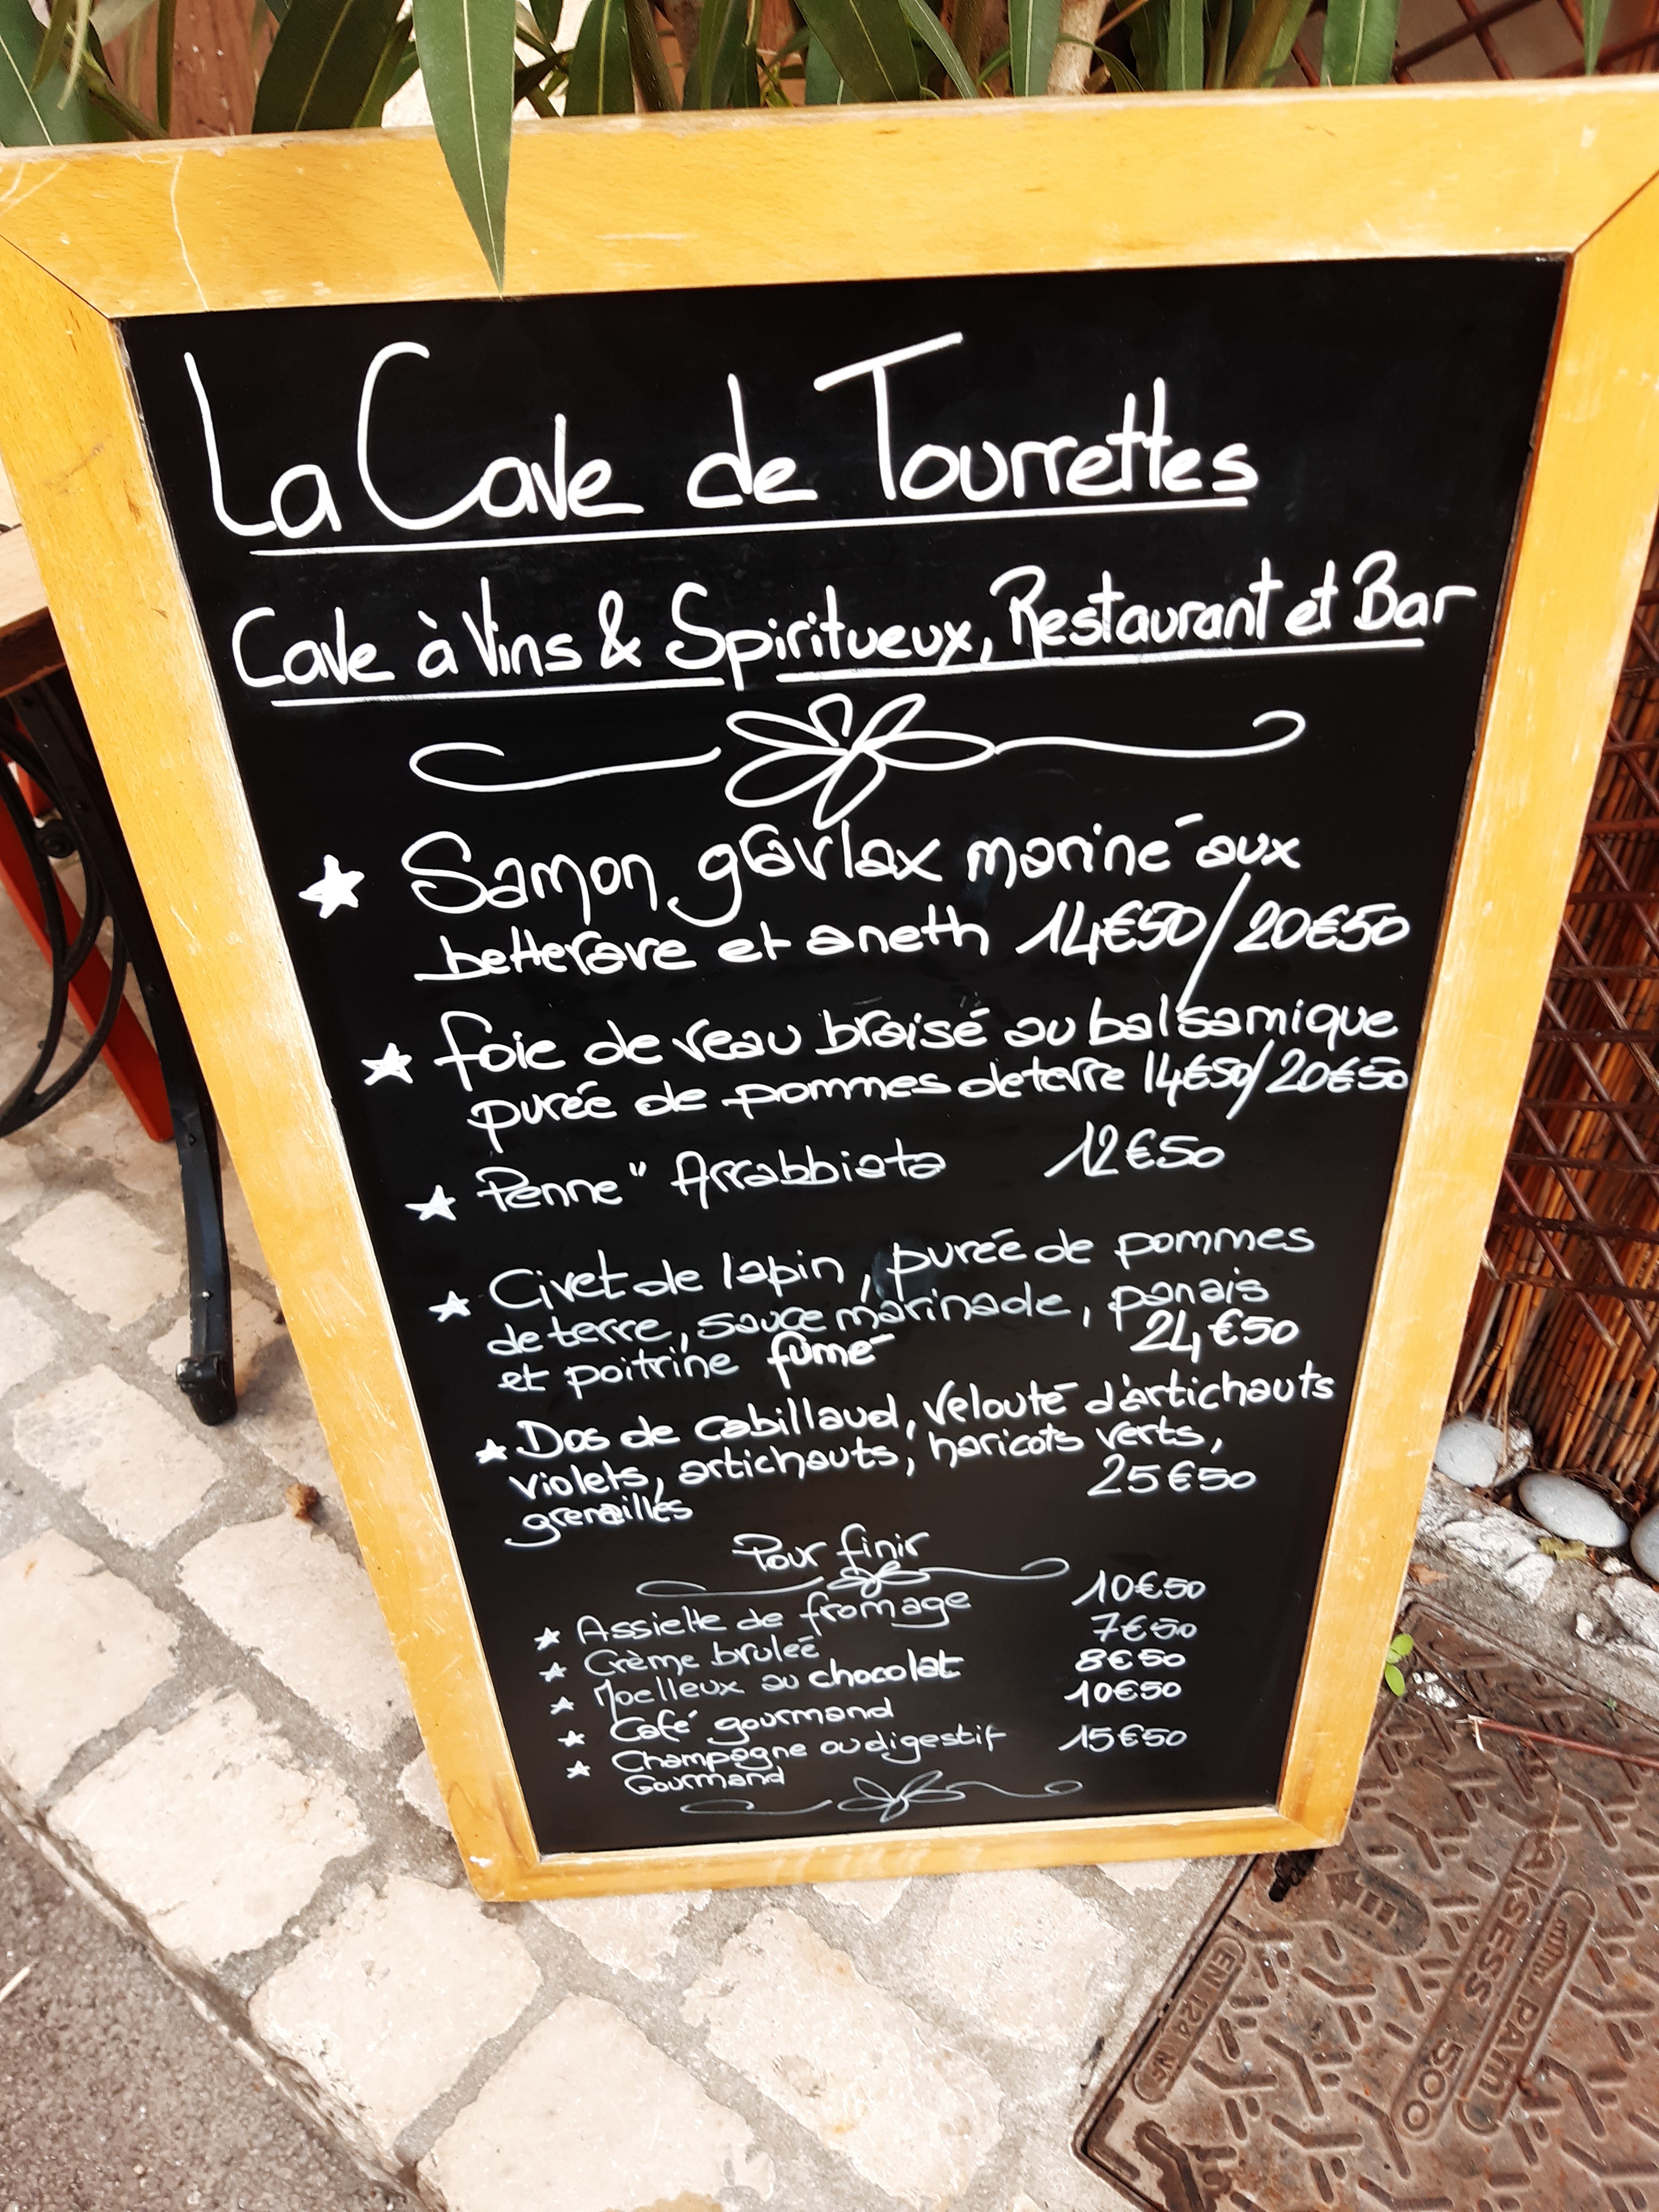 La Cave de Tourrettes
Cave à Vins & Spiritueux, Restaurant et Bar
Samon gravlax mariné aux
betterave et aneth 14€50/20€50
foie de veau braisé au balsamique
purée de pommes de terre 14€50/20€50
Penne" Arrabbiata 12€50
Civet de lapin, purée de pommes
de terre, sauce marinade, panais
et poitrine fumé 24€50
Dos de cabillaud, velouté d'artichauts
violets, artichauts, haricots verts,
grenailles 25€50
Pour finir
Assiette de fromage 10€50
Crème bruleé 7€50
Moelleux au chocolat 8€50
Café gourmand 10€50
Champagne ou digestif 15€50
Gourmand
AKSESS 500
PAM
EN 124